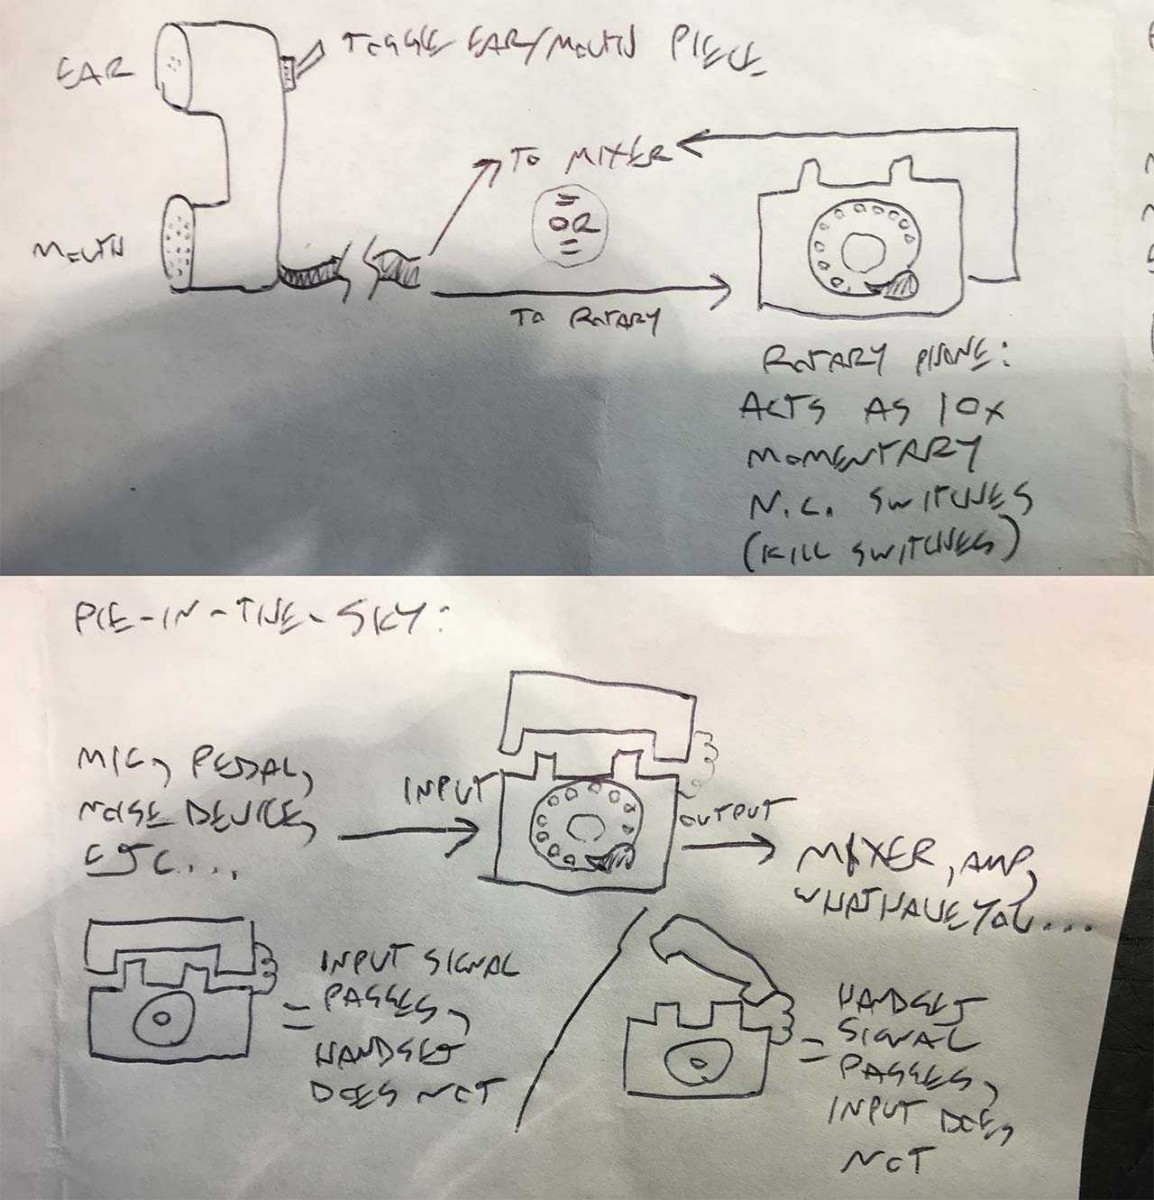 EAR
TOGGLE EAR/MOUTH PIECE
TO MIXER
OR
MOUTH
TO ROTARY
ROTARY PHONE:
ACTS AS 10X
MOMENTARY
N.C. SWITCHES
(KILL SWITCHES)
PIE-IN-THE-SKY:
MIC, PEDAL,
NOISE DEVICE,
ETC...
INPUT
OUTPUT
MIXER, AMP,
WHAT HAVE YOU...
INPUT SIGNAL
PASSES,
HANDSET
DOES NOT
HANDSET
SIGNAL
PASSES,
INPUT DOES
NOT